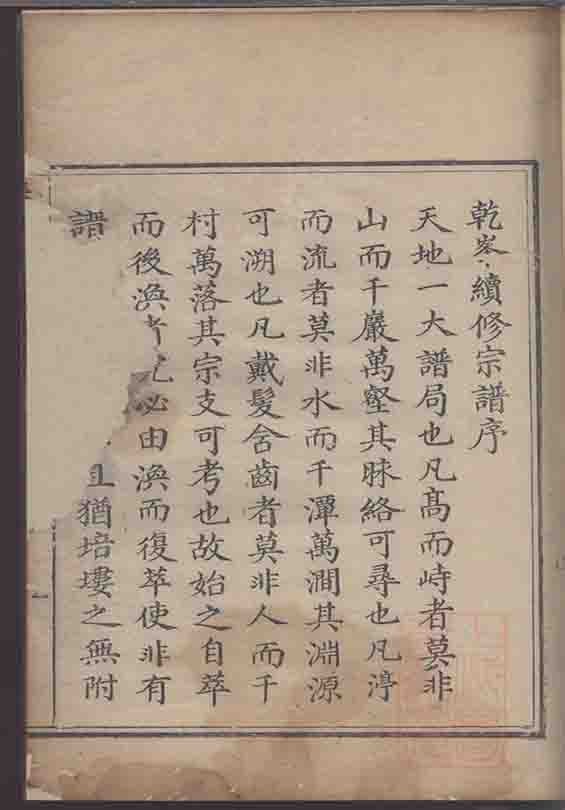 乾峯續修宗譜序
天地一大譜局也凡髙而峙者莫非
山而千巖萬壑其脉絡可尋也凡渟
而流者莫非水而千潭萬澗其淵源
可溯也凡戴髮含齒者莫非人而千
村萬落其宗支可考也故始之自萃
而後渙必由渙而復萃使非有
譜猶培塿之無附